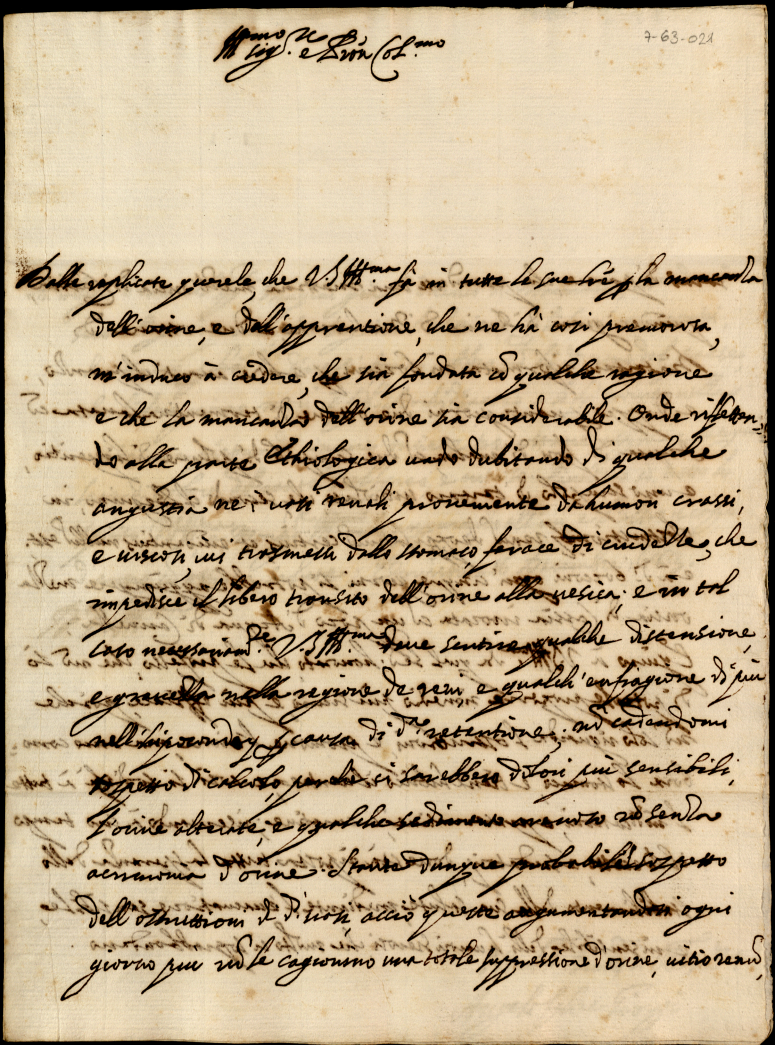 7-63-021
Ill.mo Sig.re e Pron Col.mo
Dalle replicate querele, che V.S. Ill.ma fà in tutte le sue lre p la mancanza
dell'orine, e dell'apprentione, che ne hà così premorosa,
m'induco à credere, che sia fondata cõ qualche ragione
e che la mancanza dell'orine sia considerabile. Onde rifletten-
do alla parte Ethiologica vado dubitando di qualche
angustia ne i vasi renali proveniente da humori crassi,
e viscosi, ivi trasmessi dallo stomaco ferace di crudezze, che
impedisce il libero transito dell'orine alla vesica; e in tal
caso necessariam.te V.S. Ill.ma deve sentire qualche distensione,
e gravezza nella regione de reni e qualch'enfragione di più
nell'hipocondry p causa di d.a retentione; nõ cadendomi
sospetto di calcolo, perche vi sarebbero dolori più sensibili,
l'orine alterate, e qualche sedimento arenoso nõ senza
acrimonia d'orine. Stante dunque probabile il sospetto
dell'ostruttioni di d.i vasi, acciò queste augumentandosi ogni
giorno piu nõ le cagionino una totale suppressione d'orine, vitio